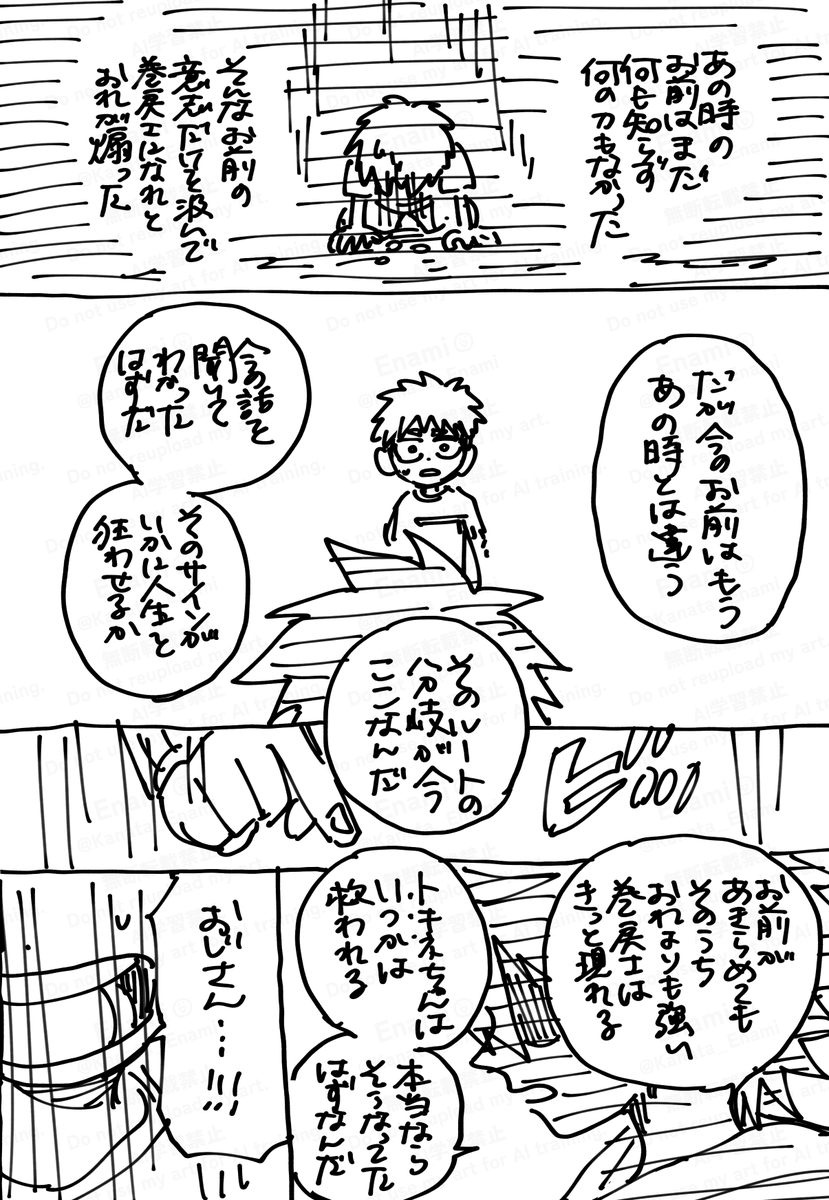 あの時の
お前はまだ
何も知らず
何の力もなかった
そんなお前の
意志だけを汲んで
巻戻士になれと
おれが煽った
だが今のお前はもう
あの時とは違う
今の話を
聞いて
わかった
はずだ
そのサインが
いかに人生を
狂わせるか
そのルートの
分岐が今
ここなんだ
お前が
あきらめても
そのうち
おれよりも強い
巻戻士は
きっと現れる
トキネちゃんは
いつかは
救われる
本当なら
そうなってた
はずなんだ
おじさん…!!!
Enami
@Kanata_Enami
無断転載禁止
Do not reupload my art.
AI学習禁止
Do not use my art for AI training.